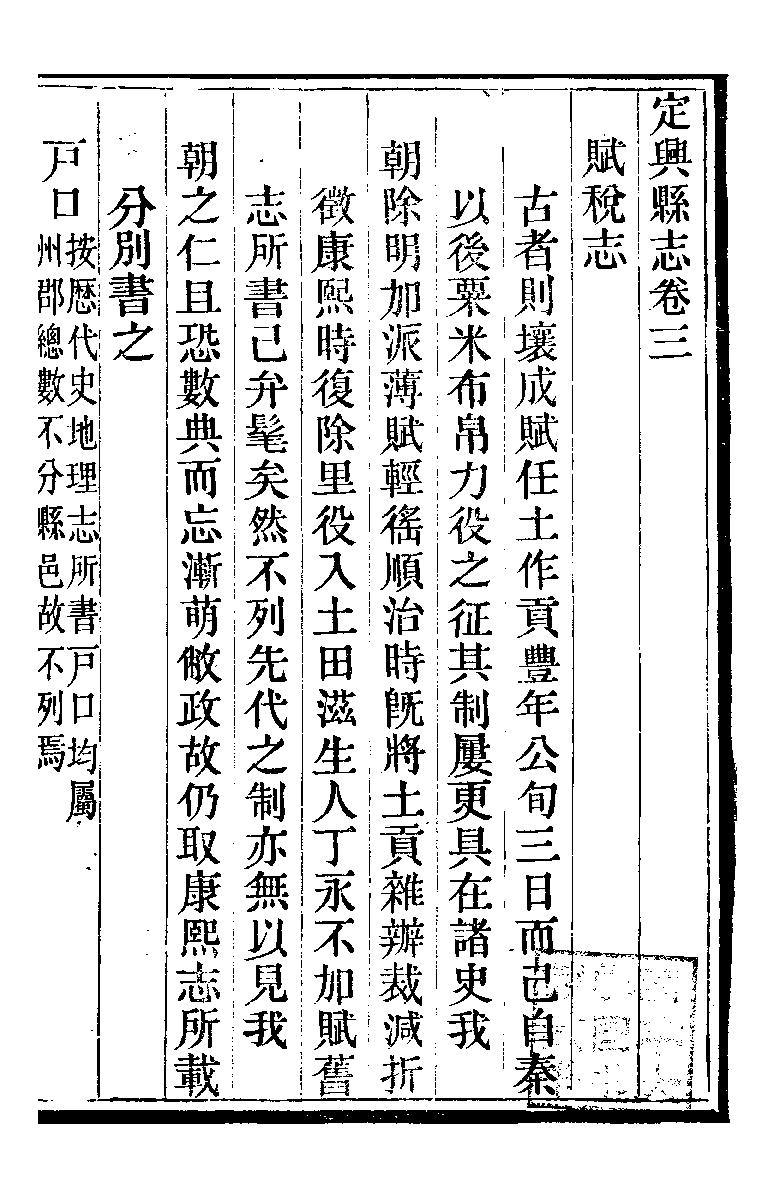 定興縣志卷三
賦稅志
古者則壤成賦任土作貢豐年公旬三日而已自秦
以後粟米布帛力役之征其制屢更具在諸史我
朝除明加派薄賦輕徭順治時旣將土貢雜辦裁減折
徵康熙時復除里役入土田滋生人丁永不加賦舊
志所書已弁髦矣然不列先代之制亦無以見我
朝之仁且恐數典而忘漸萌敝政故仍取康熙志所載
分別書之
戸口
按歷代史地理志所書戸口均屬
州郡總數不分縣邑故不列焉